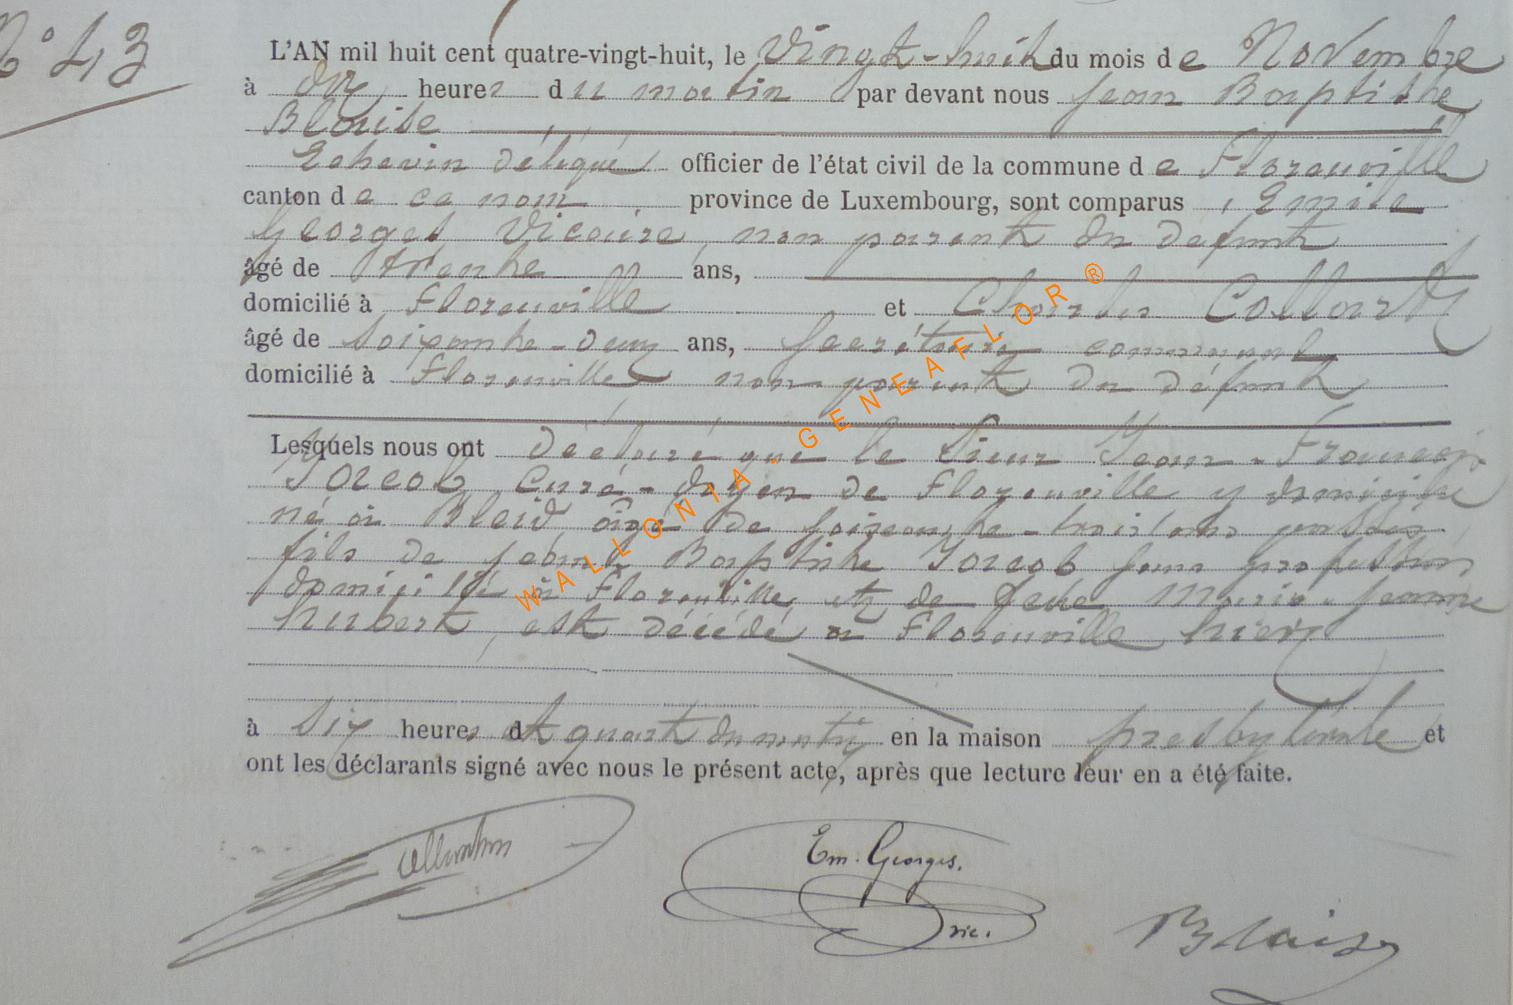 N° 43
L'AN mil huit cent quatre-vingt-huit, le Vingt-huit du mois de Novembre
à dix heures du matin par devant nous Jean Baptiste
Blaise
Echevin délégué officier de l'état civil de la commune de Florenville
canton de ce nom province de Luxembourg, sont comparus Emile
Georges Vicaire, non parent du défunt
âgé de trente ans,
domicilié à Florenville et Charles Collard
âgé de soixante-deux ans, secrétaire communal
domicilié à Florenville non parent du défunt
Lesquels nous ont déclaré que le Sieur Jean-François
Jacob, Curé-doyen de Florenville y domicilié
né à Bleid âgé de soixante-trois ans
fils de Jean Baptiste Jacob sans profession
domicilié à Florenville et de feue Marie-Jeanne
Hubert, est décédé à Florenville hier
à six heures et quart du matin en la maison presbytérale et
ont les déclarants signé avec nous le présent acte, après que lecture leur en a été faite.
Em. Georges.
vic.
Blaise
WALLONIA-GENEAFLOR®